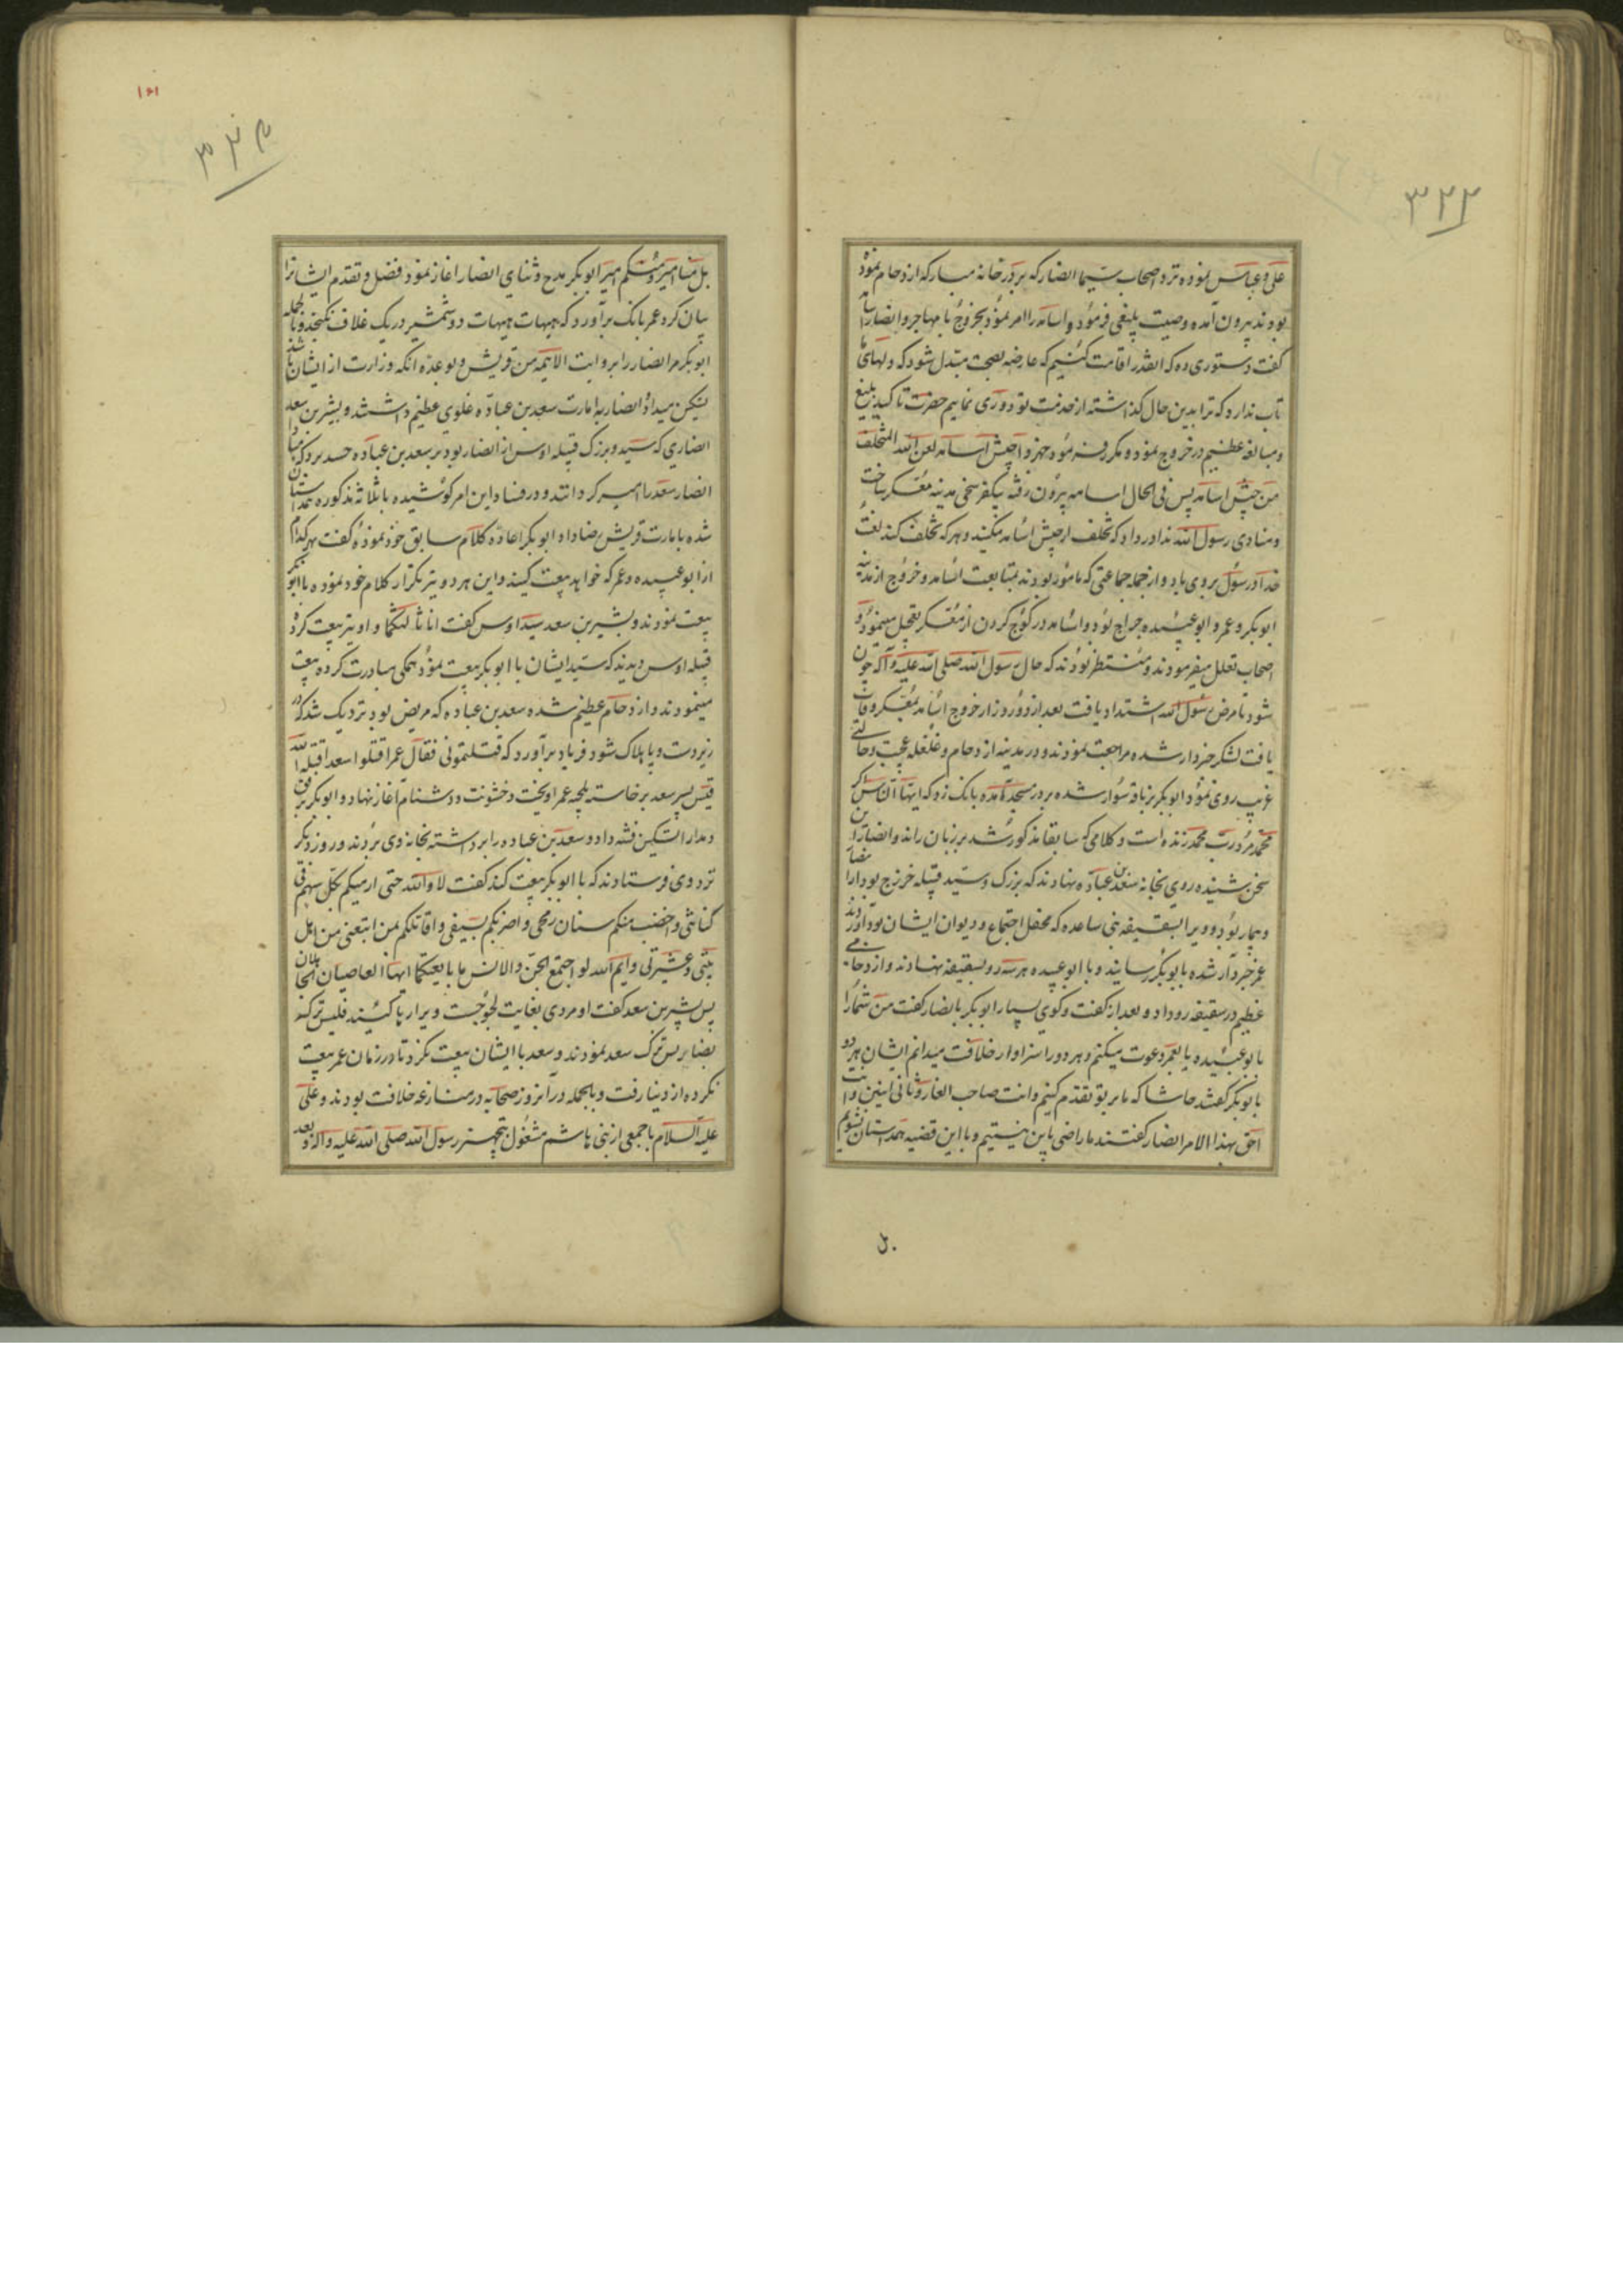 ۳۲۲
علی و عباس نموده نزد اصحاب سیما انصار که بر در خانه مبارکه ازدحام نموده
بودند بیرون آمده وصیت بلیغی فرمود و اسامه را امر نمود بخروج با مهاجر و انصار اسامه
گفت دستوری ده که انقدر اقامت کنیم که عارضه بصحت مبدل شود که دلهای ما
تاب ندارد که ترا بدین حال گذاشته از خدمت تو دوری نماییم حضرت تاکید بلیغ
و مبالغه عظیم در خروج نمود و مکرر فرموده جهزوا جیش اسامه لعن الله المتخلف
من جیش اسامه پس فی الحال اسامه بیرون رفته بیکفرسخی مدینه معسکر ساخت
و منادی رسول الله ندا در داد که تخلف از جیش اسامه مکنید و هر که تخلف کند لعنت
خدا و رسول بر وی باد و از جمله جماعتی که مامور بودند بمتابعت اسامه و خروج از مدینه
ابوبکر و عمر و ابو عبیده جراح بود و اسامه در کوچ کردن از معسکر تعجیل مینمود و
اصحاب تعلل میفرمودند و منتظر بودند که حال رسول الله صلی الله علیه و آله چون
شود تا مرض رسول الله اشتداد یافت بعد از دو روز از خروج اسامه بمعسکر وفات
یافت لشکر خبردار شده مراجعت نمودند و در مدینه ازدحام و غلغله عجیب و حالتی
غریب روی نمود ابوبکر بر ناقه سوار شده بر در مسجد آمده بانک زد که ایها الناس ان کان
محمد مرد رب محمد زنده است و کلامی که سابقا مذکور شد بر زبان راند و انصار این
سخن شنیده روی بخانه سعد بن عباده نهادند که بزرگ و سید قبیله خزرج بود از انصار
و بیمار بود و ویرا بسقیفه بنی ساعده که محفل اجتماع و دیوان ایشان بود آوردند
عمر خبردار شده بابوبکر رسانید و با ابو عبیده هر سه رو بسقیفه نهادند و ازدحامی
عظیم در سقیفه رو داد و بعد از گفت و گوی بسیار ابوبکر بانصار گفت من شما را
بابو عبیده یا بعمر دعوت میکنم و هر دو را سزاوار خلافت میدانم ایشان هر دو
بابوبکر گفتند حاشا که ما بر تو تقدم کنیم و انت صاحب الغار و ثانی اثنین و انت
احق بهذا الامر انصار گفتند ما راضی باین نیستیم و با این قضیه همداستان نشویم
بل
۳۲۳
۱۶۱
بل منا امیر و منکم امیر ابوبکر مدح و ثنای انصار اغاز نمود فضل و تقدم ایشانرا
بیان کرد عمر بانک برآورد که هیهات هیهات دو شمشیر در یک غلاف نگنجد و بالجمله
ابوبکر مر انصار را بروایت الائمه من قریش و بوعده انکه وزارت از ایشان باشد
تسکین میداد انصار به امارت سعد بن عباده غلوی عظیم داشتند و بشیر بن سعد
انصاری که سید و بزرگ قبیله اوس از انصار بود بر سعد بن عباده حسد برد که مبادا
انصار سعد را امیر گردانند و در فساد این امر کوشیده با ثلاثه مذکوره همداستان
شده بامارت قریش رضا داد ابوبکر اعاده کلام سابق خود نموده گفت بهر کدام
از ابو عبیده و عمر که خواهید بیعت کنید و این هر دو نیز تکرار کلام خود نموده با ابوبکر
بیعت نمودند و بشیر بن سعد سید اوس گفت انا ثالثکما و او نیز بیعت کرد
قبیله اوس دیدند که سید ایشان با ابوبکر بیعت نمود همگی مبادرت کرده بیعت
مینمودند و ازدحام عظیم شده سعد بن عباده که مریض بود نزدیک شد که در
زیر دست و پا هلاک شود فریاد برآورد که قتلتمونی فقال عمر اقتلوا سعدا قتله الله
قیس پسر سعد برخاسته بلحیه عمر اویخت و خشونت و دشنام آغاز نهاد و ابوبکر برفق
و مدارا تسکین فتنه داد و سعد بن عباده را برداشته بخانه وی بردند و روز دیگر
نزد وی فرستادند که با ابوبکر بیعت کند گفت لا والله حتی ارمیکم بکل سهم فی
کنانتی و اخضب منکم سنان رمحی و اضربکم بسیفی و اقاتلکم بمن اتبعنی من اهل
بیتی و عشیرتی و ایم الله لو اجتمع الجن و الانس ما بایعتکما ایها العاصیان الجاهلان
پس بشیر بن سعد گفت او مردی بغایت لجوجست ویرا رها کنید فلیس ترکه
بضایر پس ترک سعد نمودند و سعد با ایشان بیعت نکرد تا در زمان عمر بیعت
نکرده از دنیا رفت و بالجمله در آنروز صحابه در منازعه خلافت بودند و علی
علیه السلام با جمعی از بنی هاشم مشغول بتجهیز رسول الله صلی الله علیه و آله و بعد